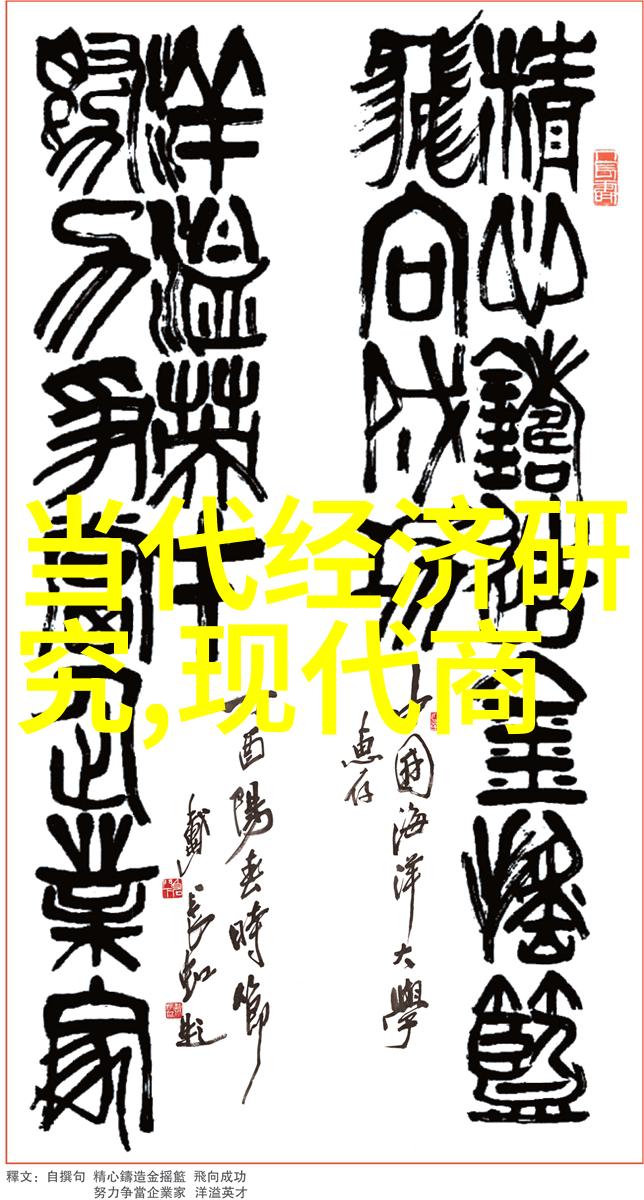 精心鑄造金摇籃
飛向成功
中國海洋大學
惠存
洋溢英才
努力争當企業家
丁酉陽春時節
戴長虹題
当代经济研
究,现代商
釋文：自撰句 精心鑄造金摇籃 飛向成功
努力争當企業家 洋溢英才